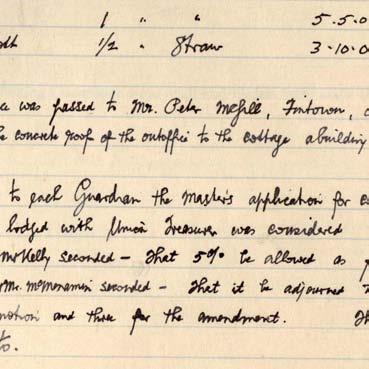 1 " " 5.5.0
1/2 " Straw 3.10.0
was passed to Mr. Peter McGill, Fintown,
concrete roof of the outoffice to the cottage a building
to each Guardian the Master's application for
lodged with Union Treasurer was considered
Mr Kelly seconded - That 5% be allowed as
Mr. McMenamin seconded - That it be adjourned
motion and three for the amendment. Th